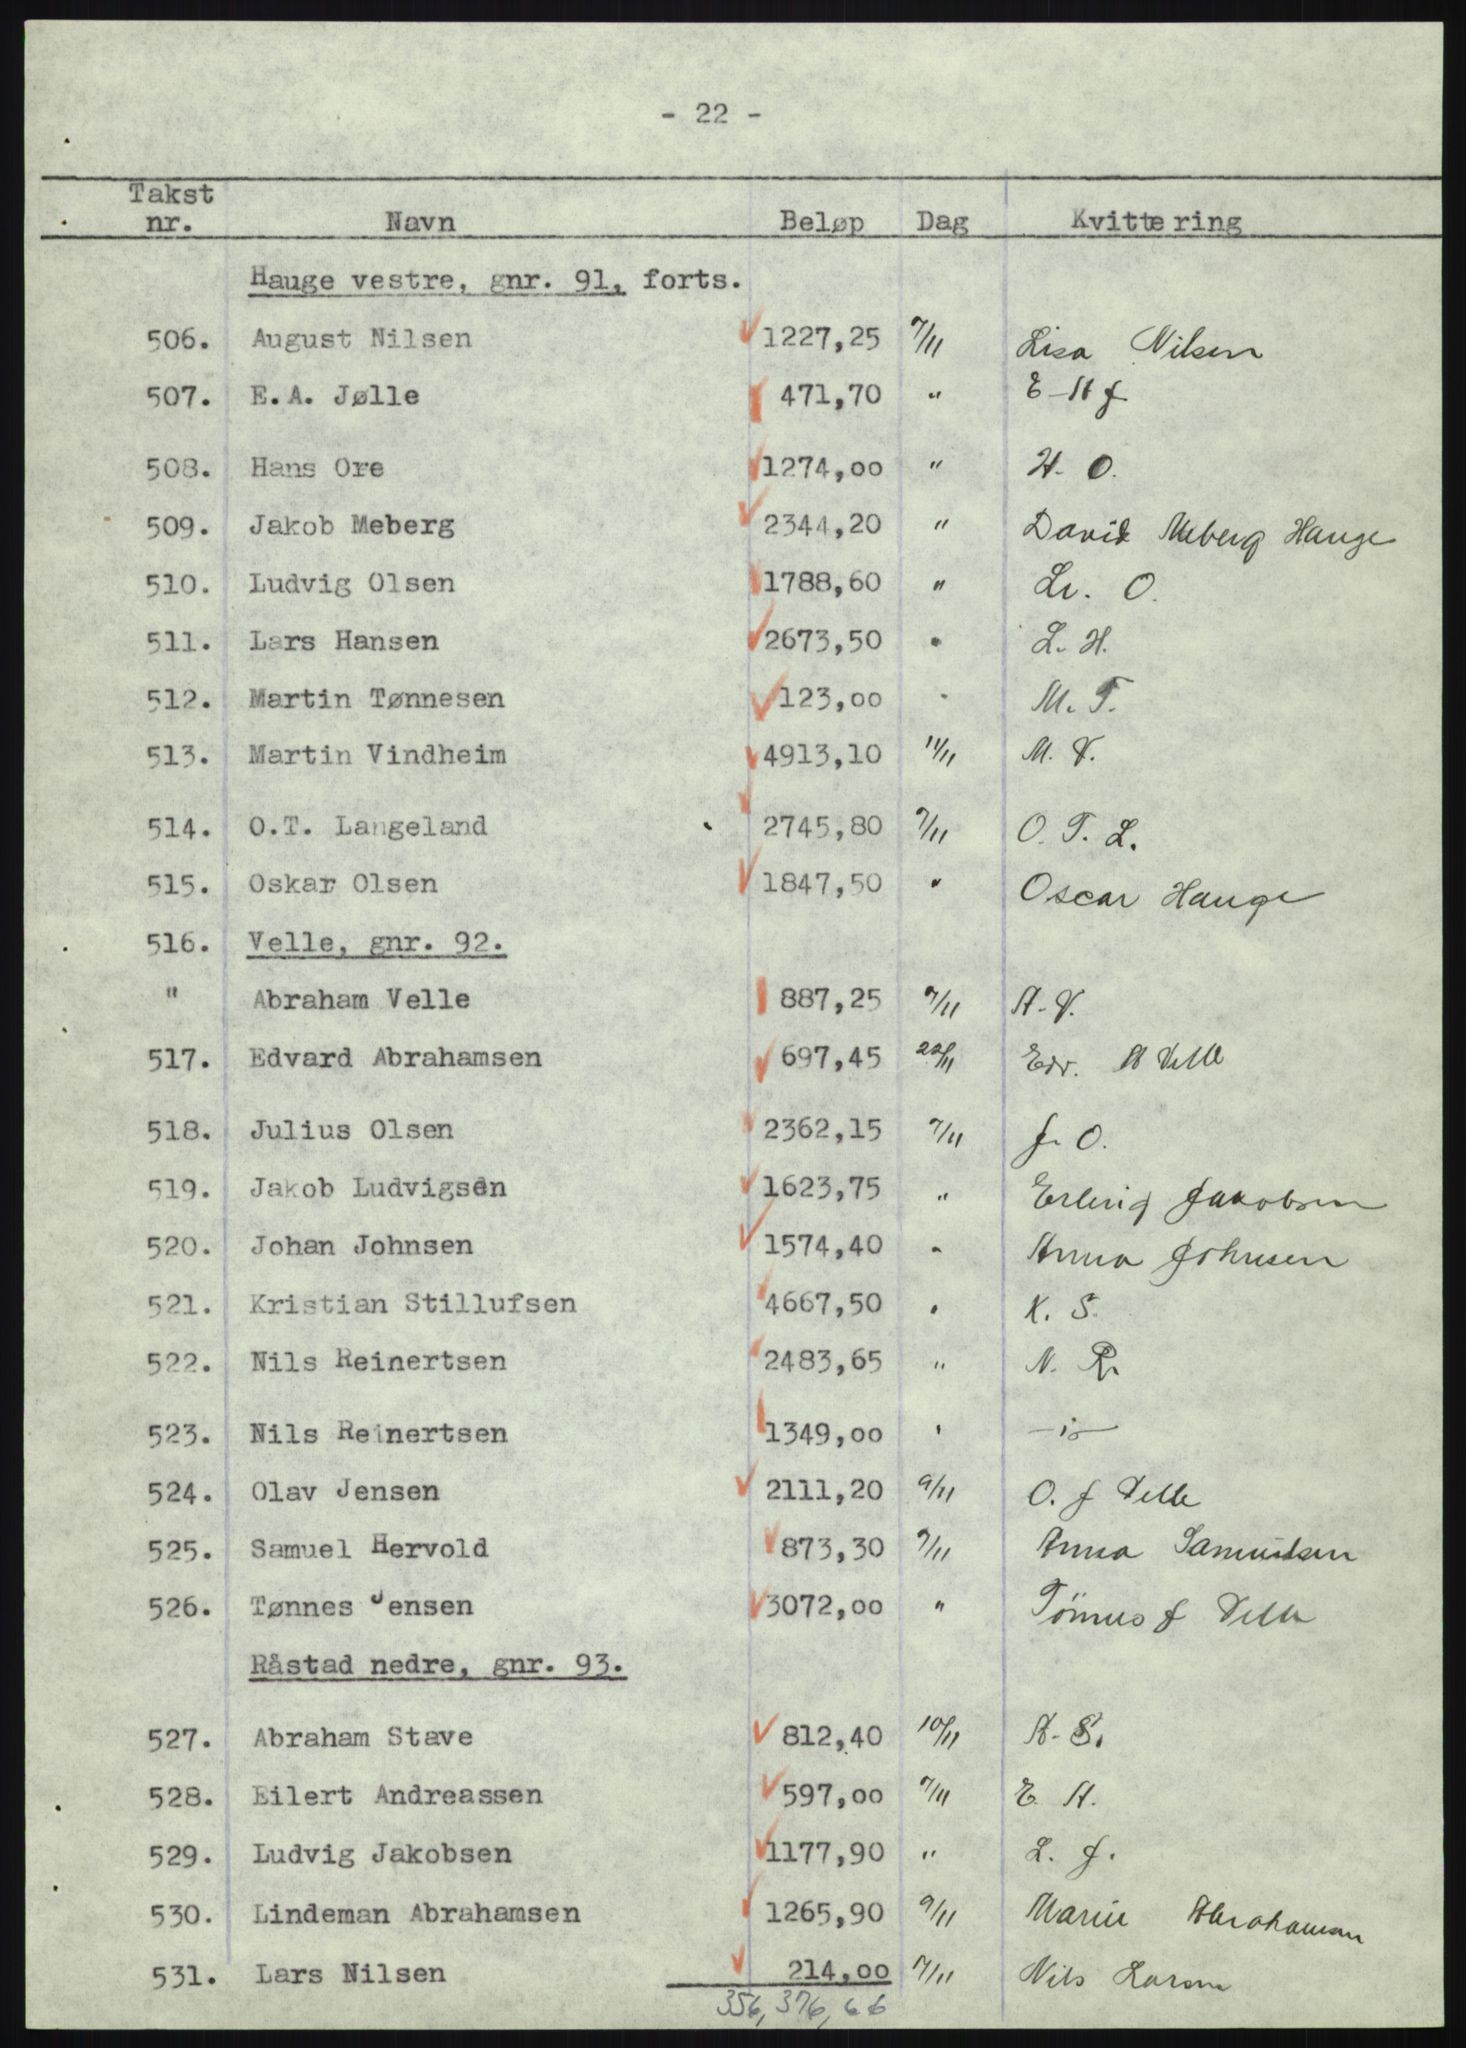 - 22 -
Takst nr. Navn Beløp Dag Kvittering
Hauge vestre, gnr. 91, forts.
506. August Nilsen 1227,25 7/11 Lisa Nilsen
507. E.A. Jølle 471,70 " E A J
508. Hans Ore 1274,00 " H. O.
509. Jakob Meberg 2344,20 " David Meberg Hauge
510. Ludvig Olsen 1788,60 " O.
511. Lars Hansen 2673,50 " L. H.
512. Martin Tønnesen 123,00 " M. T.
513. Martin Vindheim 4913,10 11/11 M. V.
514. O.T. Langeland 2745,80 7/11 O. T. L.
515. Oskar Olsen 1847,50 " Oscar Hauge
516. Velle, gnr. 92.
" Abraham Velle 887,25 7/11 A. V.
517. Edvard Abrahamsen 697,45 22/11 Edv. A Velle
518. Julius Olsen 2362,15 7/11 J. O.
519. Jakob Ludvigsen 1623,75 " Erling Jakobsen
520. Johan Johnsen 1574,40 " Anna Johnsen
521. Kristian Stillufsen 4667,50 " K. S.
522. Nils Reinertsen 2483,65 " N. R.
523. Nils Reinertsen 1349,00 "
524. Olav Jensen 2111,20 9/11 O. J Velle
525. Samuel Hervold 873,30 7/11 Anna Samuelsen
526. Tønnes Jensen 3072,00 " Tönnes J Velle
Råstad nedre, gnr. 93.
527. Abraham Stave 812,40 10/11 A. S.
528. Eilert Andreassen 597,00 7/11 E. A.
529. Ludvig Jakobsen 1177,90 " L. J.
530. Lindeman Abrahamsen 1265,90 9/11 Marie Abrahamsen
531. Lars Nilsen 214,00 7/11 Nils Larsen
356,376,66